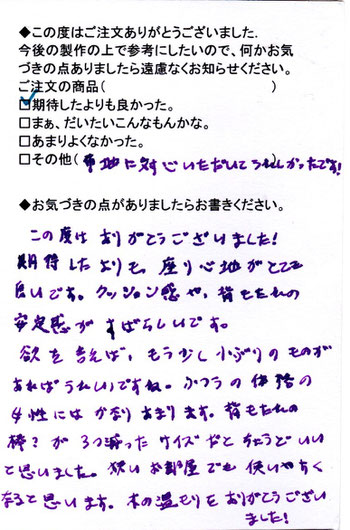 ◆この度はご注文ありがとうございました.
今後の製作の上で参考にしたいので、何かお気
づきの点ありましたら遠慮なくお知らせください。
ご注文の商品(　　　　　　　　　　)
□期待したよりも良かった。
□まぁ、だいたいこんなもんかな。
□あまりよくなかった。
□その他(布地に対応いただいてうれしかったです!)
◆お気づきの点がありましたらお書きください。
この度は ありがとうございました!
期待したよりも、座り心地がとても
良いです。クッション感や、背もたれの
安定感が すばらしいです。
欲を言えば、もう少し小ぶりのものが
あればうれしいですね。ふつうの体格の
女性には かなりあまります。背もたれの
棒?が 3つ減ったサイズだとちょうどいい
と思いました。狭いお部屋でも使いやすく
なると思います。木の温もりをありがとうござい
ました!